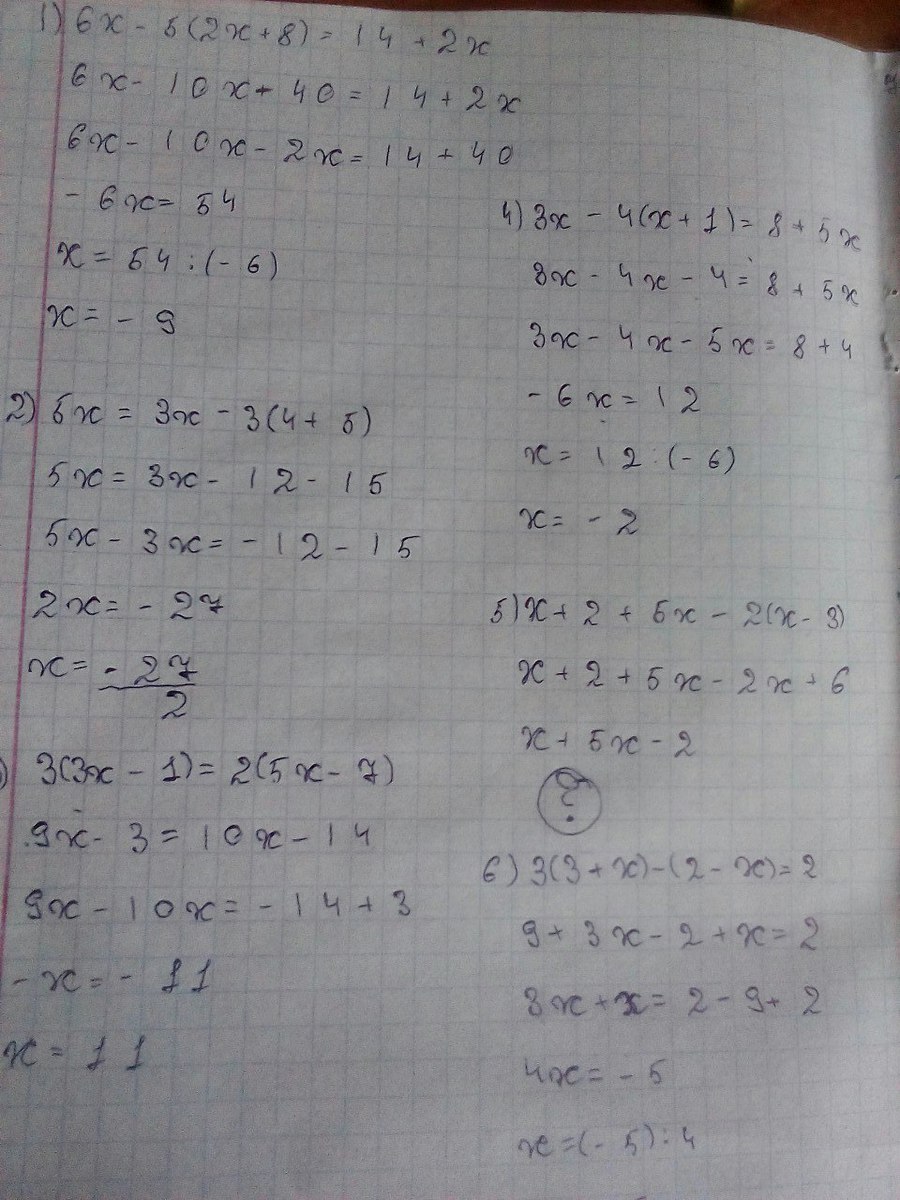 1) 6x - 5(2x+8) = 14 + 2x
6x - 10x - 40 = 14 + 2x
6x - 10x - 2x = 14 + 40
- 6x = 54
x = 54 : (- 6)
x = - 9
2) 5x = 3x - 3(4 + 5)
5x = 3x - 12 - 15
5x - 3x = - 12 - 15
2x = - 27
x = - 27
2
) 3(3x - 1) = 2(5x - 7)
9x - 3 = 10x - 14
9x - 10x = - 14 + 3
- x = - 11
x = 11
4) 3x - 4(x + 1) = 8 + 5x
3x - 4x - 4 = 8 + 5x
3x - 4x - 5x = 8 + 4
- 6x = 12
x = 12 : (- 6)
x = - 2
5) x + 2 + 5x - 2(x - 3)
x + 2 + 5x - 2x + 6
x + 5x - 2
?
6) 3(3 + x) - (2 - x) = 2
9 + 3x - 2 + x = 2
3x + x = 2 - 9 + 2
4x = - 5
x = (- 5) : 4